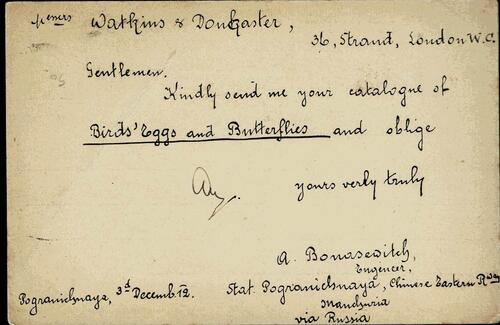 Messrs Watkins & Doncaster,
36, Strand, London W.C.
Gentlemen.
Kindly send me your catalogue of
Birds' Eggs and Butterflies and oblige
yours verly truly
A. Bonasewitch,
Engeneer,
Pogranichnaya, 3d Decemb. 12.
Stat. Pogranichnaya, Chinese Eastern Rway
Mandsuria
via Russia